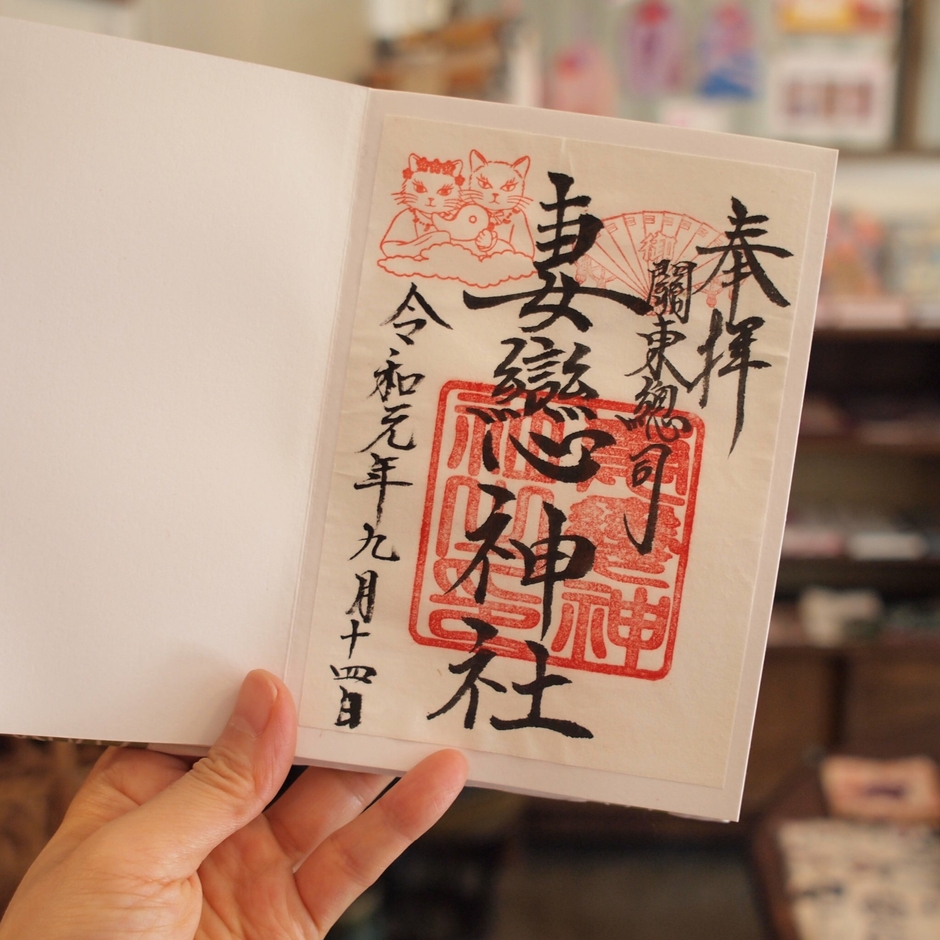 奉拝
關東總司
妻戀神社
令和元年九月十四日